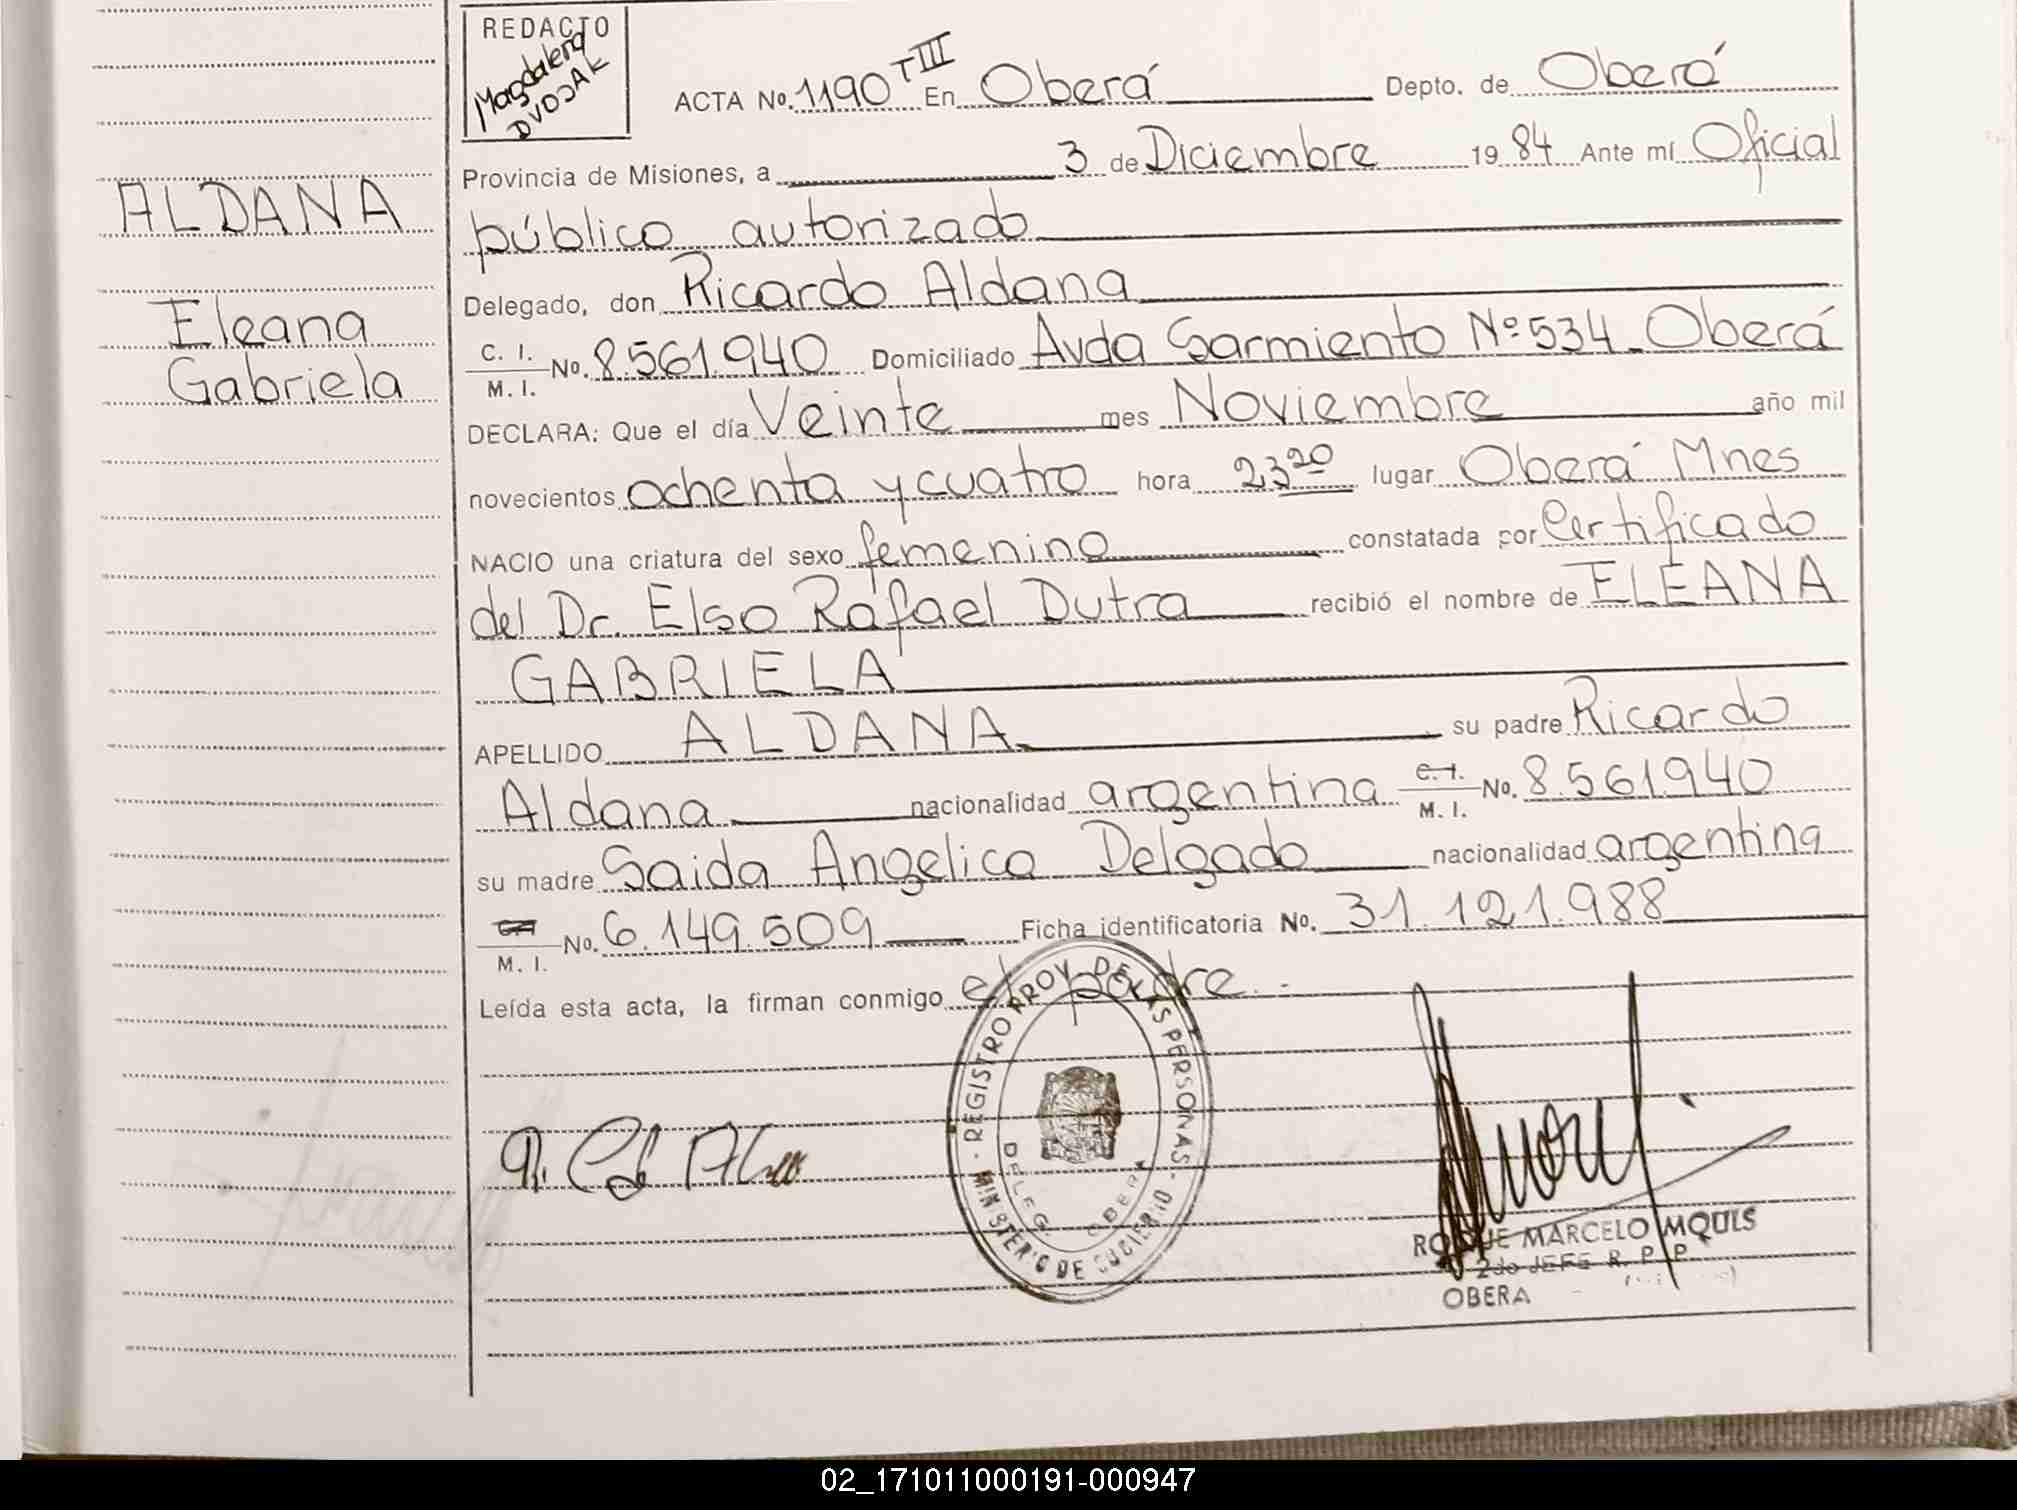 REDACTO
Magdalena
DVOJAK
ACTA No. 1190 TIII En Oberá Depto. de Oberá
Provincia de Misiones, a 3 de Diciembre 1984 Ante mí Oficial
público autorizado
ALDANA
Eleana
Gabriela
Delegado, don Ricardo Aldana
C. I. M. I. No. 8.561.940 Domiciliado Avda Sarmiento Nº 534 - Oberá
DECLARA: Que el día Veinte mes Noviembre año mil
novecientos ochenta y cuatro hora 23 20 lugar Oberá Mnes
NACIO una criatura del sexo femenino constatada por Certificado
del Dr. Elso Rafael Dutra recibió el nombre de ELEANA
GABRIELA
APELLIDO ALDANA su padre Ricardo
Aldana nacionalidad argentina C. I. M. I. No. 8.561.940
su madre Saida Angelica Delgado nacionalidad argentina
M. I. No. 6.149.509 Ficha identificatoria No. 31.121.988
Leída esta acta, la firman conmigo el padre.-
REGISTRO PROV. DE LAS PERSONAS - MINISTERIO DE GOBIERNO -
DELEG. OBERA
ROQUE MARCELO MQUIS
2do JEFE R. P. P.
OBERA
02_171011000191-000947